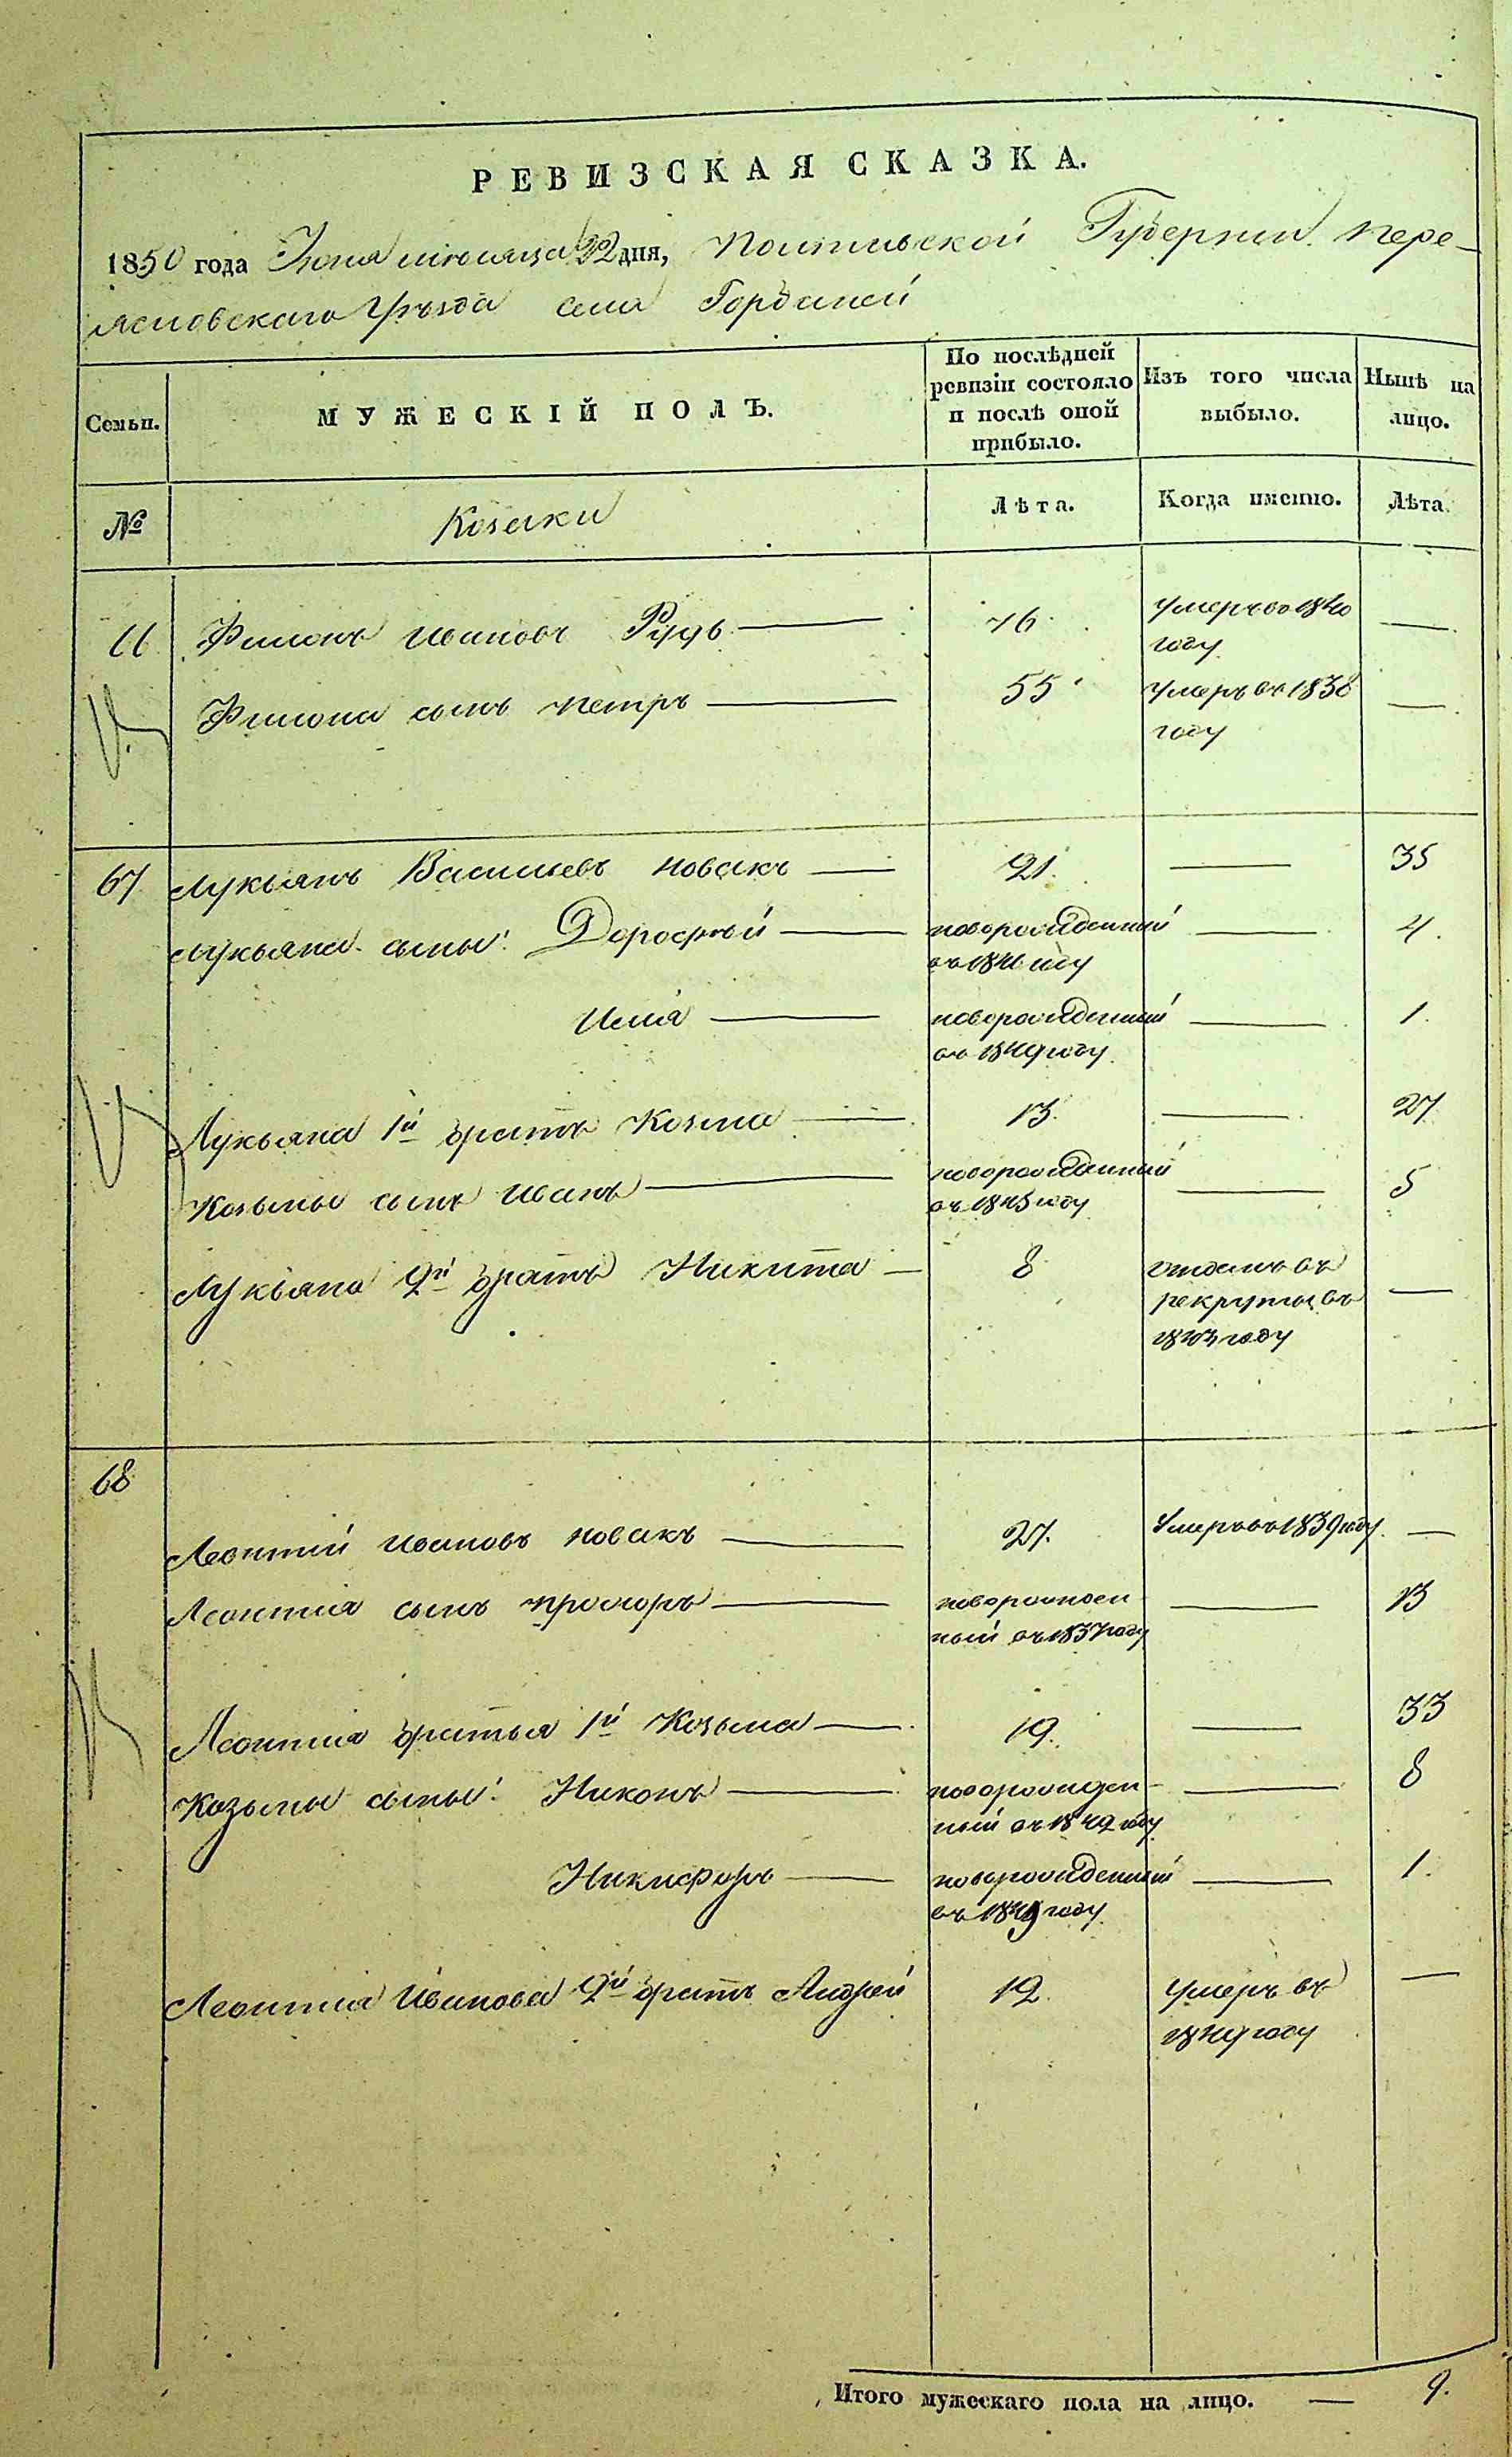 РЕВИЗСКАЯ СКАЗКА.
1850 года Іюня мѣсяца 22 дня, Полтавской Губерніи Пере-
яславскаго Уѣзда села Гордыней
Семьи.
МУЖЕСКІЙ ПОЛЪ.
По послѣдней ревизіи состояло и послѣ оной прибыло.
Изъ того числа выбыло.
Нынѣ на лицо.
№
Козаки
Лѣта.
Когда имѣнно.
Лѣта.
66 Филонъ Ивановъ Рудь — 76. умеръ въ 1840 —
году
Филона сынъ Петръ — 55 умеръ въ 1838 —
году
67 Лукьянъ Васильевъ Новакъ — 21. — 35
Лукьяна сыны: Дорофей — новорожденный — 4.
въ 1846 году
Илія — новорожденный — 1.
въ 1849 году
Лукьяна 1й братъ Козма — 13. — 27
Козьмы сынъ Иванъ — новорожденный — 5
въ 1845 году
Лукьяна 2й братъ Никита — 8 отданъ въ —
рекруты въ
году
68
Леонтий Ивановъ Новакъ — 27. Умеръ въ 1839 году. —
Леонтія сынъ Прохоръ — новорожден- — 13
ный въ 1837 году
Леонтія братья 1й Козьма — 19. — 33
Козьмы сыны: Никонъ — новорожден- — 8
ный въ 1842 году
Никифоръ — новорожденный — 1.
въ 1849 году
Леонтія Иванова 2й братъ Андрей 12. умеръ въ —
1849 году
Итого мужескаго пола на лицо. — 9.